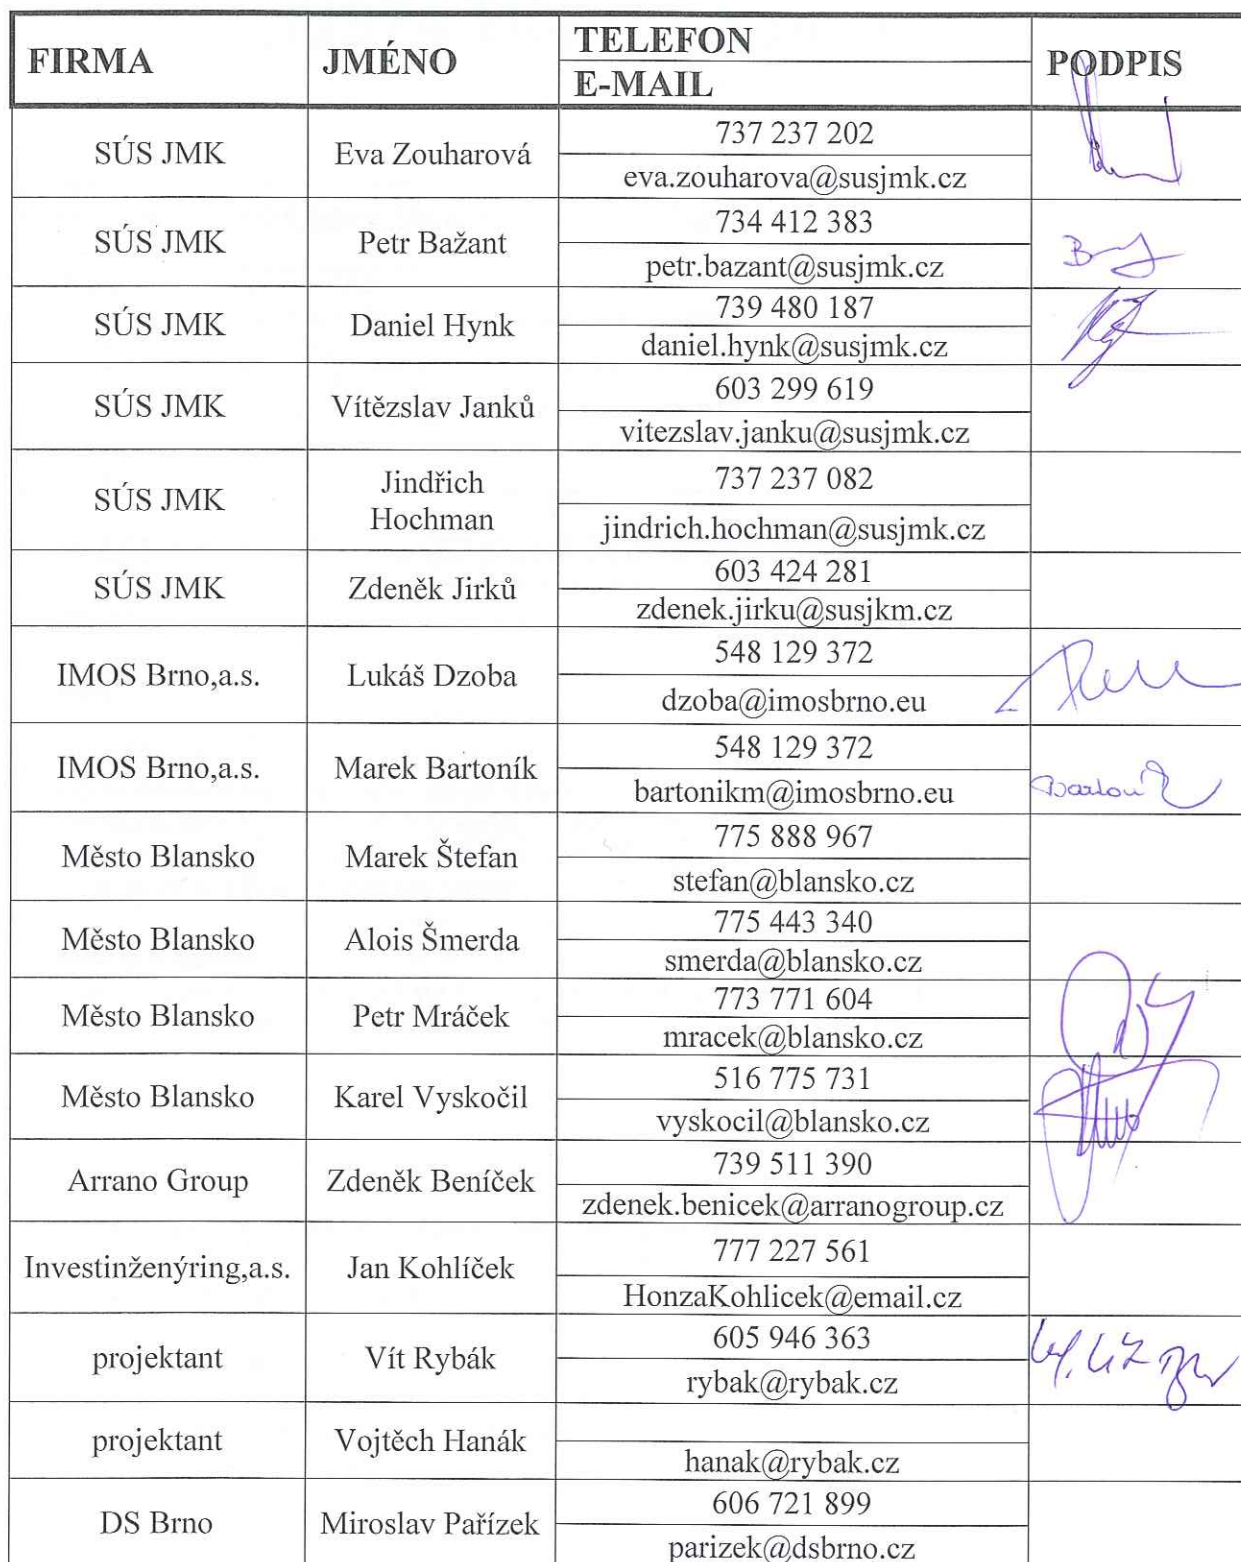 FIRMA JMÉNO TELEFON PODPIS
E-MAIL
SÚS JMK Eva Zouharová 737 237 202
eva.zouharova@susjmk.cz
SÚS JMK Petr Bažant 734 412 383
petr.bazant@susjmk.cz
SÚS JMK Daniel Hynk 739 480 187
daniel.hynk@susjmk.cz
SÚS JMK Vítězslav Janků 603 299 619
vitezslav.janku@susjmk.cz
SÚS JMK Jindřich Hochman 737 237 082
jindrich.hochman@susjmk.cz
SÚS JMK Zdeněk Jirků 603 424 281
zdenek.jirku@susjkm.cz
IMOS Brno,a.s. Lukáš Dzoba 548 129 372
dzoba@imosbrno.eu
IMOS Brno,a.s. Marek Bartoník 548 129 372
bartonikm@imosbrno.eu
Město Blansko Marek Štefan 775 888 967
stefan@blansko.cz
Město Blansko Alois Šmerda 775 443 340
smerda@blansko.cz
Město Blansko Petr Mráček 773 771 604
mracek@blansko.cz
Město Blansko Karel Vyskočil 516 775 731
vyskocil@blansko.cz
Arrano Group Zdeněk Beníček 739 511 390
zdenek.benicek@arranogroup.cz
Investinženýring,a.s. Jan Kohlíček 777 227 561
HonzaKohlicek@email.cz
projektant Vít Rybák 605 946 363
rybak@rybak.cz
projektant Vojtěch Hanák
hanak@rybak.cz
DS Brno Miroslav Pařízek 606 721 899
parizek@dsbrno.cz